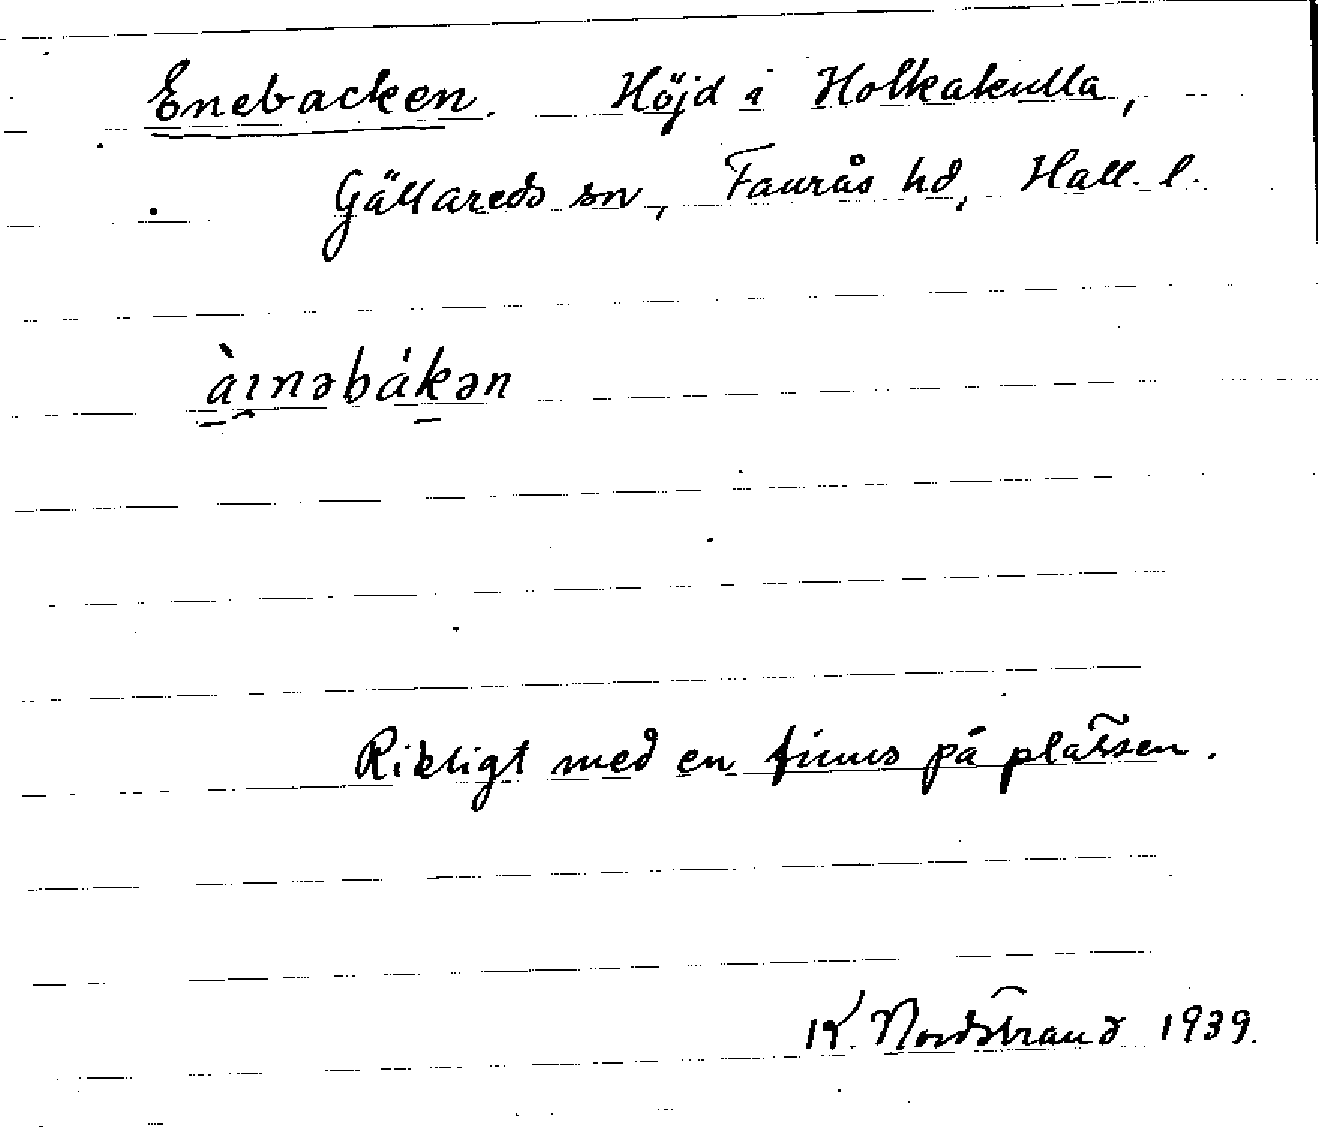 Enebacken. Höjd i Holkakulla,
Gällareds sn, Faurås hd, Hall. l.
àınəbákən
Rikligt med en finns på platsen.
K. Nordstrand 1939.